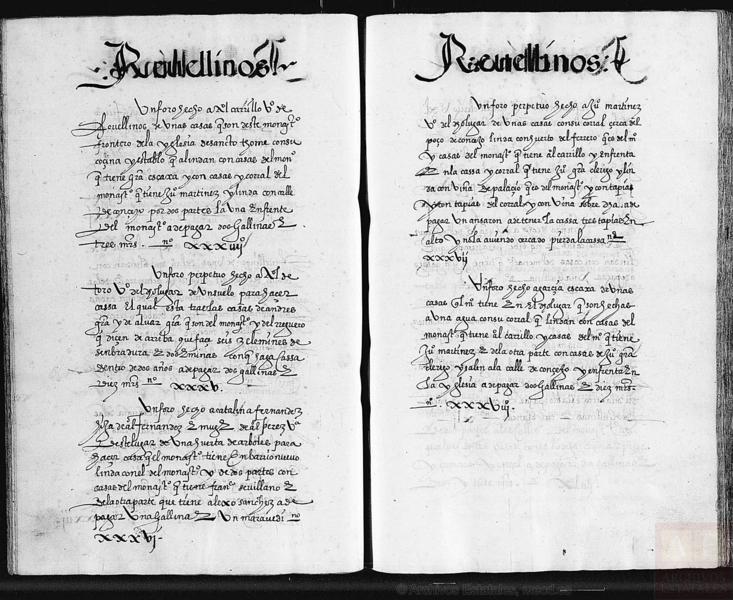 Rouellinos
Un foro hecho a Al carrillo vº de
Rouellinos de Unas casas q son deste monastº
frontero dela yglesia de sancto thome con su
cozina y establo q alindan con casas del monº
q tiene grª escaxa y con casas y corral del
monastº q tiene Juº martinez y linda con calle
de conçejo por dos partes la Una enfrente
del monastº a de pagar dos gallinas E
tres mrs. nº XXXiiij
Un foro perpetuo hecho a Al de
toro vº del dho lugar de Un suelo para hacer
cassa El qual esta tras las casas de andres
grª y de aluar grª q son del monastº y del reguero
q dicen de arriba que haga seis zelemines de
senbradura E dos Eminas con q haga cassa
dentro de dos años a de pagar dos gallinas E
diez mrs nº XXXV.
Un foro hecho a catalina fernandez
hija de al fernandez E muger de al perez vº
deste lugar de Una huerta de arboles para
hacer casa q el monastº tiene En barrio nueuo
linda con el del monastº y de dos partes con
casas del monastº q tiene franº seuillano E
dela otra parte que tiene alexo sanchez a de
pagar Una gallina E Un marauedi nº
XXXVj
Rouellinos
Un foro perpetuo hecho a Juº martinez
vº del dho lugar de Unas casas con su corral çerca del
poço de conçejo linda con huerto del ferrero q es del mº
y casas del monastº q tiene Al carrillo y enfrenta
En la cassa y corral q tiene Juº grª clerigo y lin
da con viña de palaçio q es del monastº y con tapias
y con tapias del corral y con vina sobre dha. a de
pagar Un ansaron a de tener la cassa tres tapias En
alto y no la auiendo cercado pierda la cassa nº
XXXVij
Un foro hecho a garçia escaxa de Unas
casas q el mº tiene En el dho lugar q son hechas
a Una agua con su corral q lindan con casas del
monastº q tiene Al carrillo y casas del mº q tiene
Juº martinez E dela otra parte con casas de Juº grª
clerigo y salin a la calle de conçejo y enfrenta En
la yglesia a de pagar dos gallinas E diez mrs.
nº XXXViij.
© Archivos Estatales, mecd.es